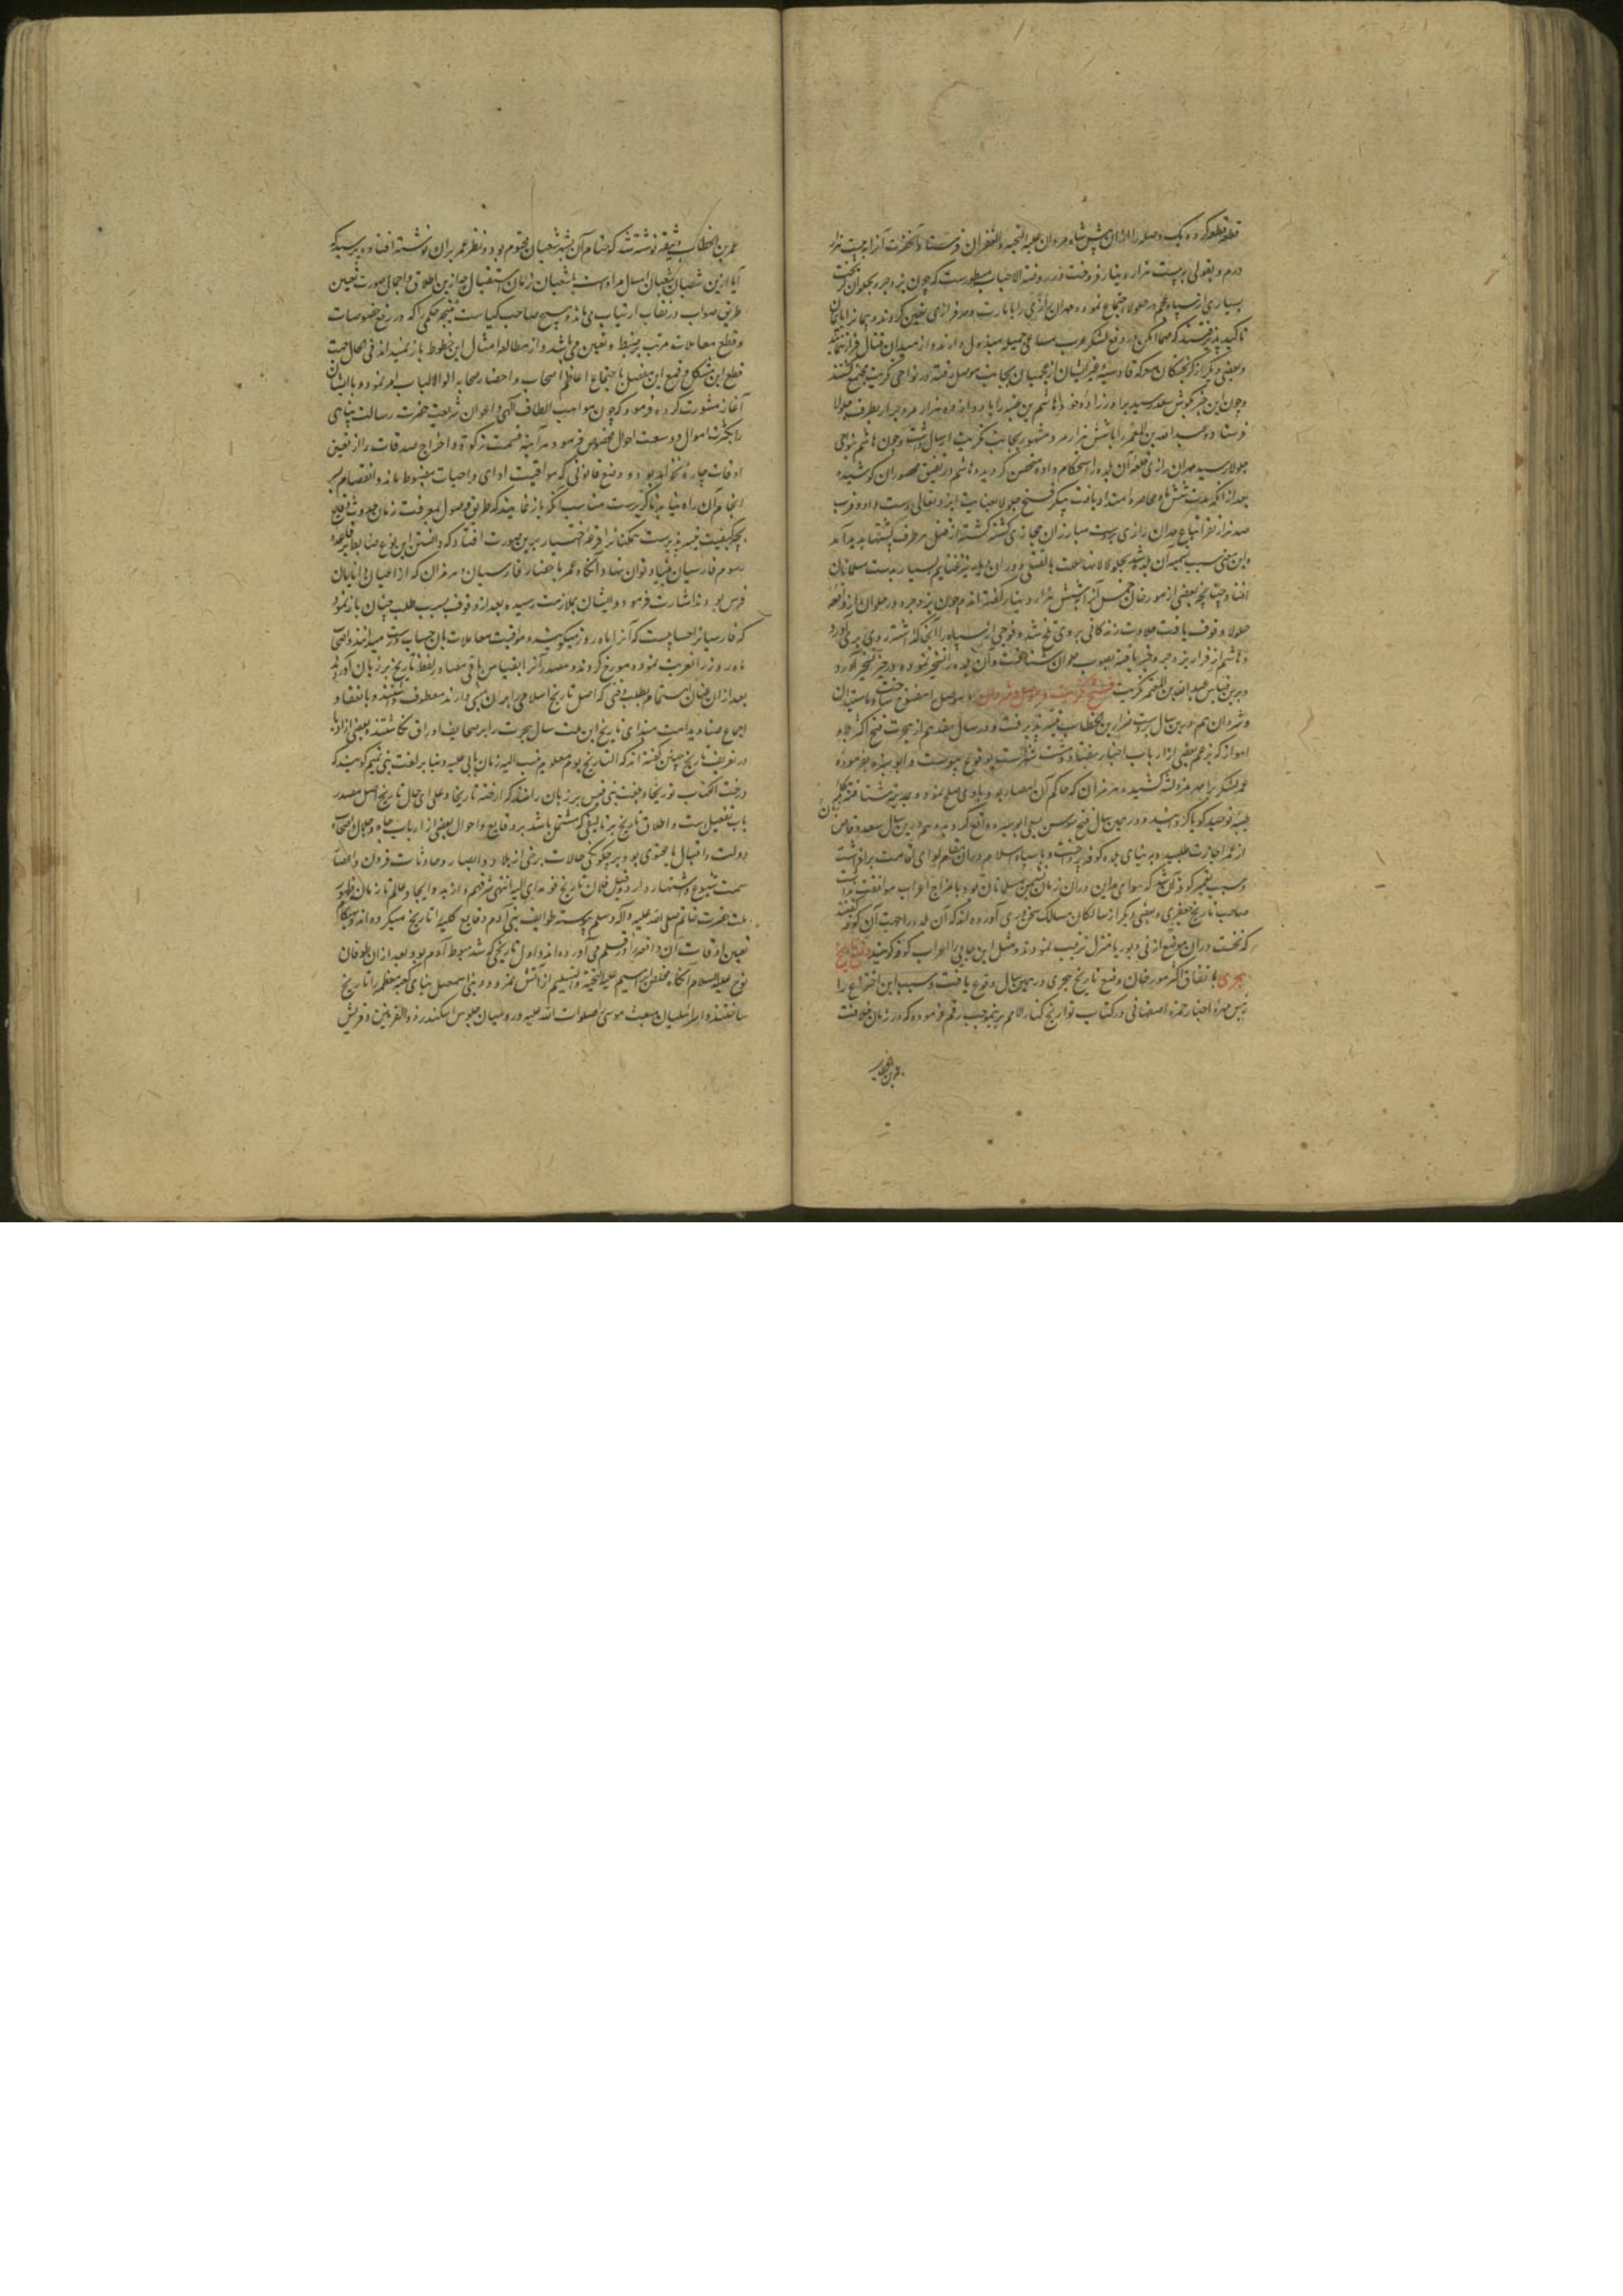 قطعه قطعه کرده یک وصله را ازان پیش شاه مردان علیه التحیه والغفران فرستاد و آنحضرت آنرا به بیست هزار
درم و بقولی به بیست هزار دینار فروخت و در روضة الاحباب مسطورست که چون یزدجرد بحلوان گریخت
بسیاری از سپاه عجم در جلولا اجتماع نموده مهران رازی را بامارت و سرافرازی تعین کردند و
تاکید پذیرفتند که مهما امکن در دفع لشکر عرب مساعی جمیله مبذول دارند و از میدان قتال فرار ننمایند
و بعضی دیگر از گریختگان معرکه قادسیه و غیر ایشان از عجمیان بجانب موصل رفته در نواحی تکریت مجتمع گشتند
و چون این خبر بگوش سعد رسید برادرزاده خود هاشم بن عتبه را با دوازده هزار مرد جرار بطرف جلولا
فرستاده عبدالله بن المعتم را با شش هزار مرد مشهور بجانب تکریت ارسال داشت و چون هاشم بنواحی
جلولا رسید مهران رازی قلعه آن بلده را استحکام داده متحصن گردید و هاشم در تضیق محصوران کوشیده
بعد از آنکه مدت شش ماه محاصره امتداد یافت پیکر فتح جلولا بعنایت ایزد تعالی دست داد و قرب
صد هزار نفر از اتباع مهران رازی بدست مبارزان حجازی کشته گشته از قتل هر طرف پشتها پدید آمد
و این معنی سبب تسمیه آن بلده شد بجلولا و غنایم بسیار بدست مسلمانان
افتاد چنانچه بعضی از مورخان خمس آنرا شش هزار دینار گفته‌اند و چون یزدجرد در حلوان از واقعه
جلولا وقوف یافت حلاوت زندگانی بر وی تلخ شد و فوجی از سپاه را آنجا گذاشته روی بری آورد
و هاشم از فرار یزدجرد خبر یافته بصوب حلوان شتافت و آن بلده را تسخیر نموده در حیز تسخیر آورد
و برین قیاس عبدالله بن المعتم تکریت فتح تکریت و موصل و شروان با موصل
و شروان هم درین سال بدست ضرار بن الخطاب تسخیر پذیرفت و در سال هفدهم از هجرت فتح اکثر بلاد
اهواز که بزعم بعضی از ارباب اخبار هفتاد و هشت شهرست بوقوع پیوست و ابو سبره بفرموده
عمر لشکر برامهرمز کشید و هرمزان که حاکم آن امصار بود با وی صلح نمود و بمدینه شتافته کلمه
طیبه توحید گویا گردانید و در همین سال فتح سوس بسعی ابو سبره واقع گردید و هم درین سال سعد وقاص
از عمر اجازت طلبیده به بنای بلده کوفه پرداخت و با سپاه اسلام دران مقام لوای اقامت برافراشت
و سبب تعمیر کوفه آن شد که هوای مداین دران زمان نشیمن مسلمانان بود با مزاج اعراب موافقت نداشت
صاحب تاریخ جعفری و بعضی دیگر از سالکان مسالک سخن‌وری آورده‌اند که آن بلده را بجهت آن کوفه گفتند
که نخست دران موضع از نی و بوریا منزل ترتیب نمودند و مثل این جایی را اعراب کوفه گویند وضع تاریخ
هجری باتفاق اکثر مورخان وضع تاریخ هجری در همین سال وقوع یافت و سبب این اختراع را
حمزه اصفهانی در کتاب تواریخ کبار الامم برینموجب رقم فرموده که در زمان خلافت
عمر بن الخطاب
عمر بن الخطاب وثیقه نوشته شد که ختام آن بشهر شعبان مختوم بود و نظر عمر بران نوشته افتاده پرسید که
آیا ازین شعبان شعبان امسال مرادست یا شعبان زمان استقبال چه ازین اطلاق و اجمال صورت تعین
طریق صواب در نقاب ارتیاب می‌ماند و هیچ صاحب کیاست نتیجه حکمی را که در رفع خصومات
و قطع معاملات مرتب بضبط و تعین می‌باشد و از مطالعه امثال این خطوط باز نمیداند فی الحال جهت
قطع این مشکل و قمع این معضل باجتماع اعاظم اصحاب و احضار صحابه اولو الالباب امر نمود و با ایشان
آغاز مشورت کرده فرمود که چون مواهب الطاف الهی و اعوان شریعت حضرت رسالت پناهی
را بکثرت اموال و وسعت احوال مخصوص فرمود هر آینه قسمت زکوة و اخراج صدقات را از تعین
اوقات چاره نخواهد بود و وضع قانونی که مواقیت ادای واجبات مضبوط ماند و انفصام بسر
انجام آن راه نیابد ناگزیرست مناسب آنکه باز نمایند که طریق وصول بمعرفت زمان حدوث وقایع
بچه کیفیت تیسیر پذیرست همکنانرا قرعه اختیار برین صورت افتاد که دانستن این نوع ضابطه بر قاعده
رسوم فارسیان بنیاد توان نهاد و آنگاه عمر باحضار فارسیان و هرمزان که از اعیان دانایان
فرس بود اشارت فرمود و ایشان بملازمت رسیده بعد از وقوف بسبب طلب چنان باز نمود
که فارسیانرا حسابیست که آنرا ماه روز میگویند و مواقیت معاملات بان حساب درست میدانند و اصحاب
ماه روز را تعریب نموده مورخ کردند و مصدر آنرا بقیاس باقی مصادر لفظ تاریخ بر زبان آوردند
بعد ازان عنان اهتمام بطلب وقتی که اصل تاریخ اسلامی را بران مبنی دارند معطوف داشتند و بانعقاد
اجماع صنادید امت مبدای تاریخ این ملت سال هجرت را بر صحایف اوراق نگاشتند و بعضی از ادبا
در تعریف تاریخ چنین گفته‌اند که التاریخ یوم معلوم ینسب الیه زمان یاتی علیه و بنا بر لغت بنی تمیم گویند که
ورخت الکتاب توریخا و بلغت بنی قیس بر زبان رانند که ارخته تاریخا و علی ای حال تاریخ اصل مصدر
باب تفعیل ست و اطلاق تاریخ بر تالیفی که مشتمل باشد بر وقایع و احوال بعضی از ارباب جاه و جلال و اصحاب
دولت و اقبال یا محتوی بود بر چگونگی حالات برخی از بلاد و امصار و حادثات قرون و اعصار
سمت شیوع و اشتهار دارد و قبل فلان تاریخ قومه ای الیه انتهی شرفهم و از بدو ایجاد عالم تا زمان ظهور
ملت حضرت خاتم صلی الله علیه و آله و سلم پیوسته طوایف بنی آدم وقایع کلیه را تاریخ میکرده‌اند و بهنگام
تعین اوقات آن واقعه را در قلم می‌آورده‌اند و اول تاریخی که شد هبوط آدم بود و بعد ازان طوفان
نوح علیه السلام آنگاه مخلص ابراهیم علیه التحیة و التسلیم از آتش نمرود و بنی اسمعیل بنای کعبه معظمه را تاریخ
ساختند و اسرائیلیان مبعث موسی صلوات الله علیه و رومیان جلوس اسکندر ذو القرنین و قریش